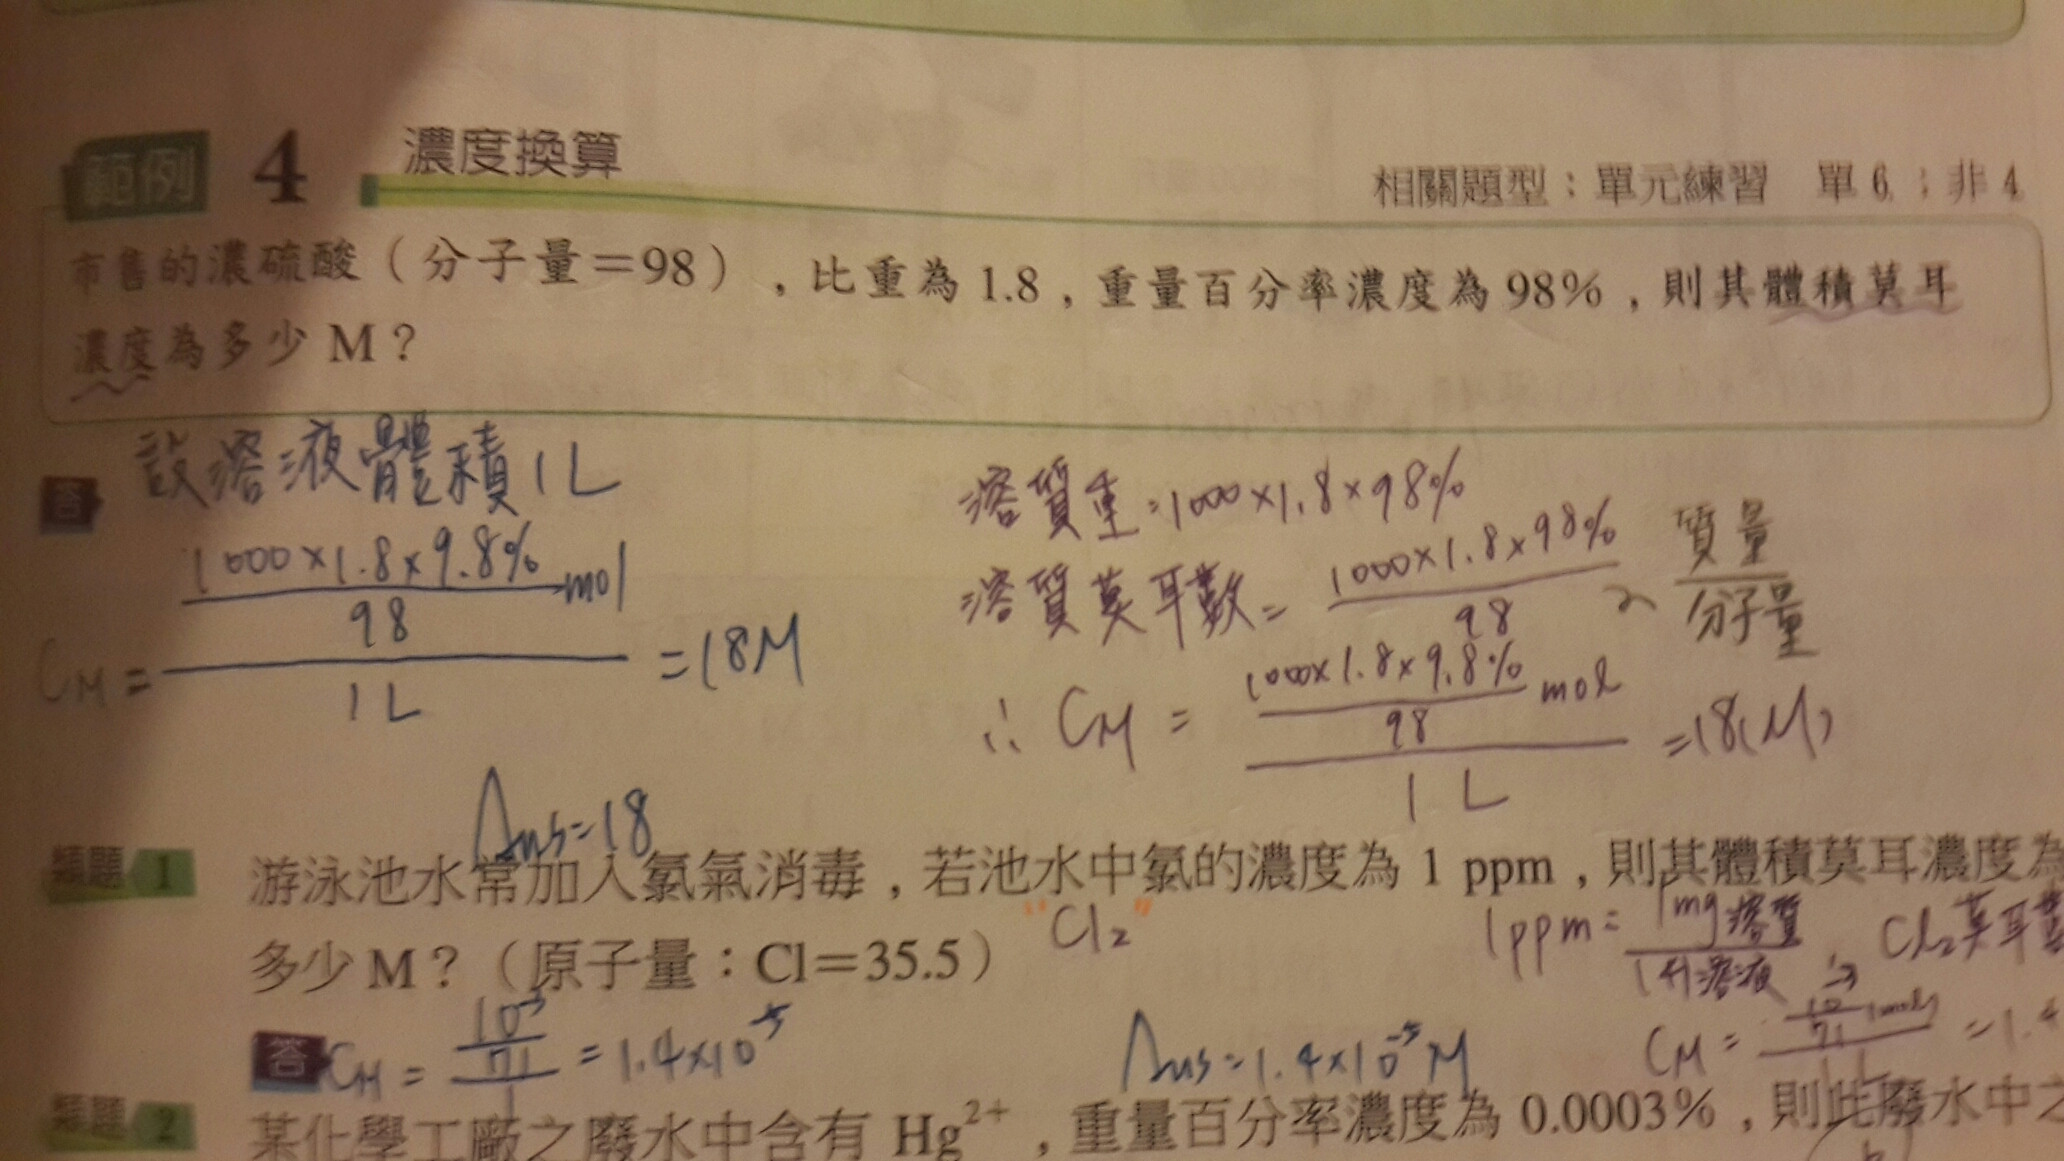 範例 4 濃度換算
相關題型：單元練習 單6；非4
市售的濃硫酸（分子量＝98），比重為1.8，重量百分率濃度為98%，則其體積莫耳
濃度為多少M？
答 設溶液體積1L
1000×1.8×9.8%
98
mol
CM = 1L = 18M
Ans=18
溶質重=1000×1.8×98%
溶質莫耳數= 1000×1.8×98%
98
質量
分子量
∴ CM = 1000×1.8×9.8%
98
mol
1 L
=18(M)
類題 1 游泳池水常加入氯氣消毒，若池水中氯的濃度為1 ppm，則其體積莫耳濃度為
多少M？（原子量：Cl＝35.5）
"Cl2"
1ppm= 1mg溶質
溶液
Cl2莫耳
答 CM = 10⁻³
71
1
=1.4×10⁻⁵
Ans=1.4×10⁻⁵M
CM = 10⁻³
71
(mol)
1L
=1.4
類題 2 某化學工廠之廢水中含有Hg²⁺，重量百分率濃度為0.0003%，則此廢水中之